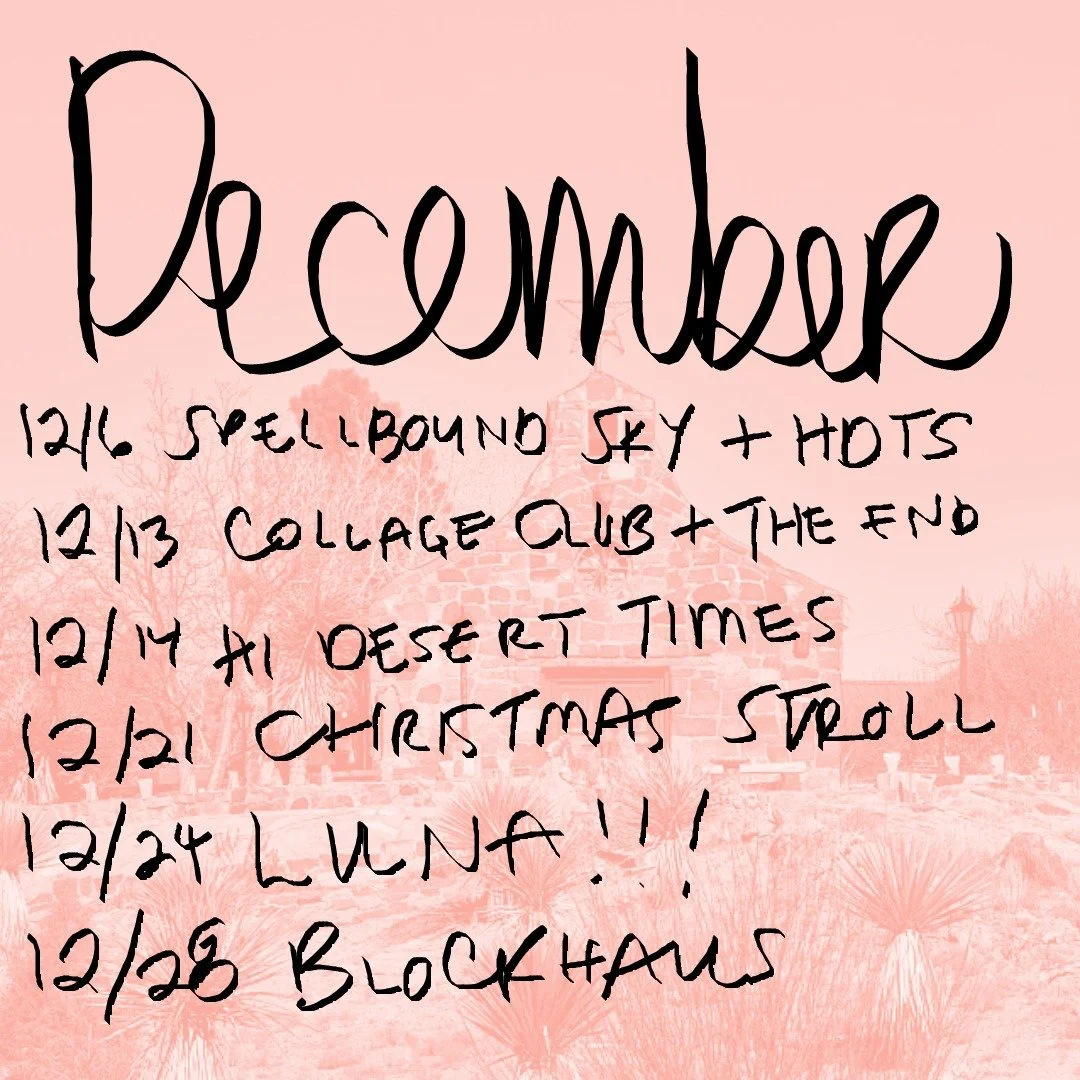 December
12/6 SPELLBOUND SKY + HDTS
12/13 COLLAGE CLUB + THE END
12/14 HI DESERT TIMES
12/21 CHRISTMAS STROLL
12/24 LUNA!!!
12/28 BLOCKHAUS